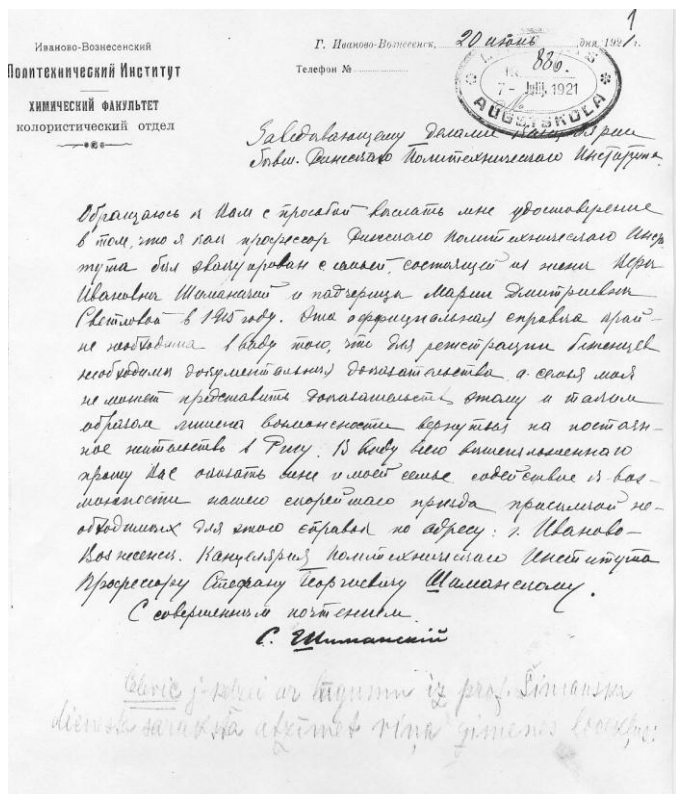 1
Иваново-Вознесенский
Политехнический Институт
ХИМИЧЕСКИЙ ФАКУЛЬТЕТ
колористический отдел
Г. Иваново-Вознесенск, 20 июнь дня 1921 г.
Телефон №
886.
7 - Julij. 1921
AUGSTSKOLA
Заведывающему Делами Канцелярии
бывш. Рижского Политехнического Института.
Обращаюсь к Вам с просьбой выслать мне удостоверение
в том, что я как профессор Рижского Политехнического Инсти-
тута был эвакуирован с семьей, состоящей из жены Веры
Ивановны Шиманской и падчерицы Марии Дмитриевны
Светловой в 1915 году. Эта оффициальная справка край-
не необходима ввиду того, что для регистрации беженцев
необходимы документальныя доказательства, а семья моя
не может представить доказательств этому и таким
образом лишена возможности вернуться на постоян-
ное жительство в Ригу. В виду всего вышеизложеннаго
прошу Вас оказать мне и моей семье содействие в воз-
можности нашего скорейшаго приезда присылкой не-
обходимых для этого справок по адресу: г. Иваново-
Вознесенск. Канцелярия Политехническаго Института
Профессору Стефану Георгиевичу Шиманскому.
С совершенным почтением
С. Шиманский
ar lūgumu iz prof. Šimanska
dienesta sarakstā atzīmēt viņa ģimenes locekļus.